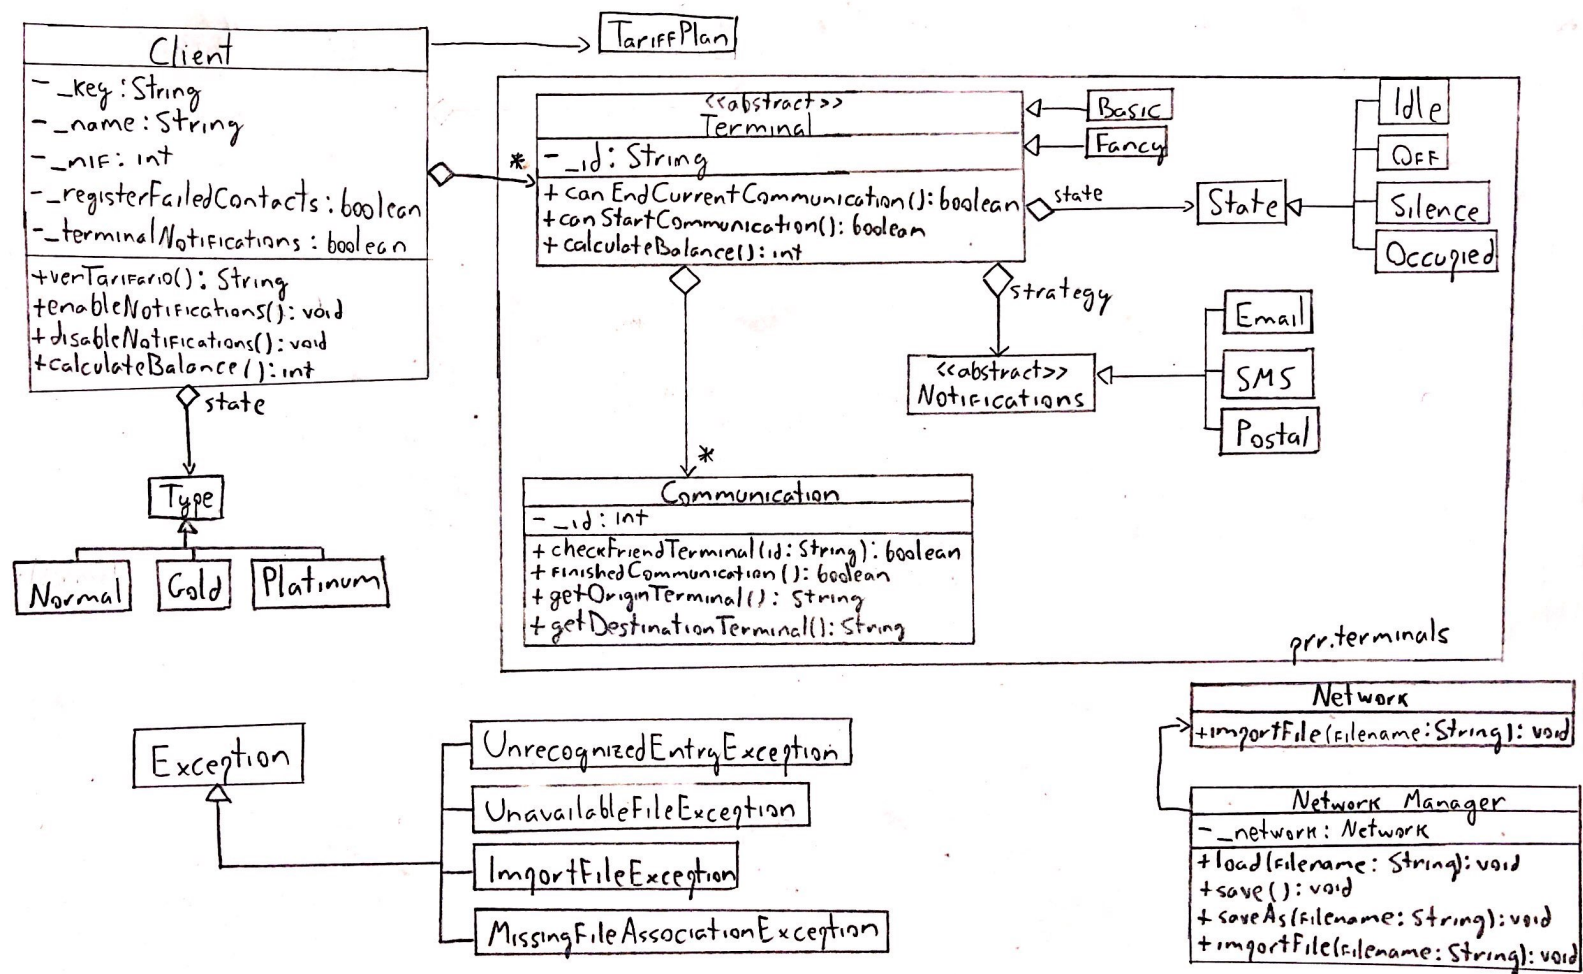 Client
- _key: String
- _name: String
- _nIF: int
- _registerFailedContacts: boolean
- _terminalNotifications: boolean
+ verTarifario(): String
+ enableNotifications(): void
+ disableNotifications(): void
+ calculateBalance(): int
state
Type
Normal
Gold
Platinum
TariffPlan
<<abstract>>
Terminal
- _id: String
+ canEndCurrentCommunication(): boolean
+ canStartCommunication(): boolean
+ calculateBalance(): int
*
Basic
Fancy
state
State
Idle
OFF
Silence
Occupied
strategy
<<abstract>>
Notifications
Email
SMS
Postal
*
Communication
- _id: int
+ checkFriendTerminal(id: String): boolean
+ finishedCommunication(): boolean
+ getOriginTerminal(): String
+ getDestinationTerminal(): String
prr.terminals
Exception
UnrecognizedEntryException
UnavailableFileException
ImportFileException
MissingFileAssociationException
Network
+importFile(filename: String): void
Network Manager
- _network: Network
+ load(filename: String): void
+ save(): void
+ saveAs(filename: String): void
+ importFile(filename: String): void